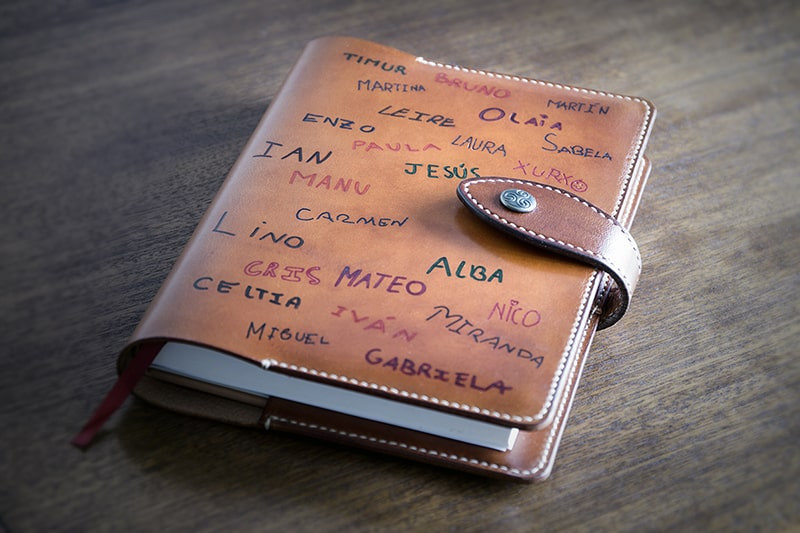 TIMUR
BRUNO
MARTINA
MARTÍN
LEIRE
OLAiA
ENZO
PAULA
LAURA
SABELA
IAN
JESÚS
XURXO
MANU
CARMEN
LiNO
CRIS
MATEO
ALBA
CELTIA
IVÁN
MIRANDA
NICO
MIGUEL
GABRIELA